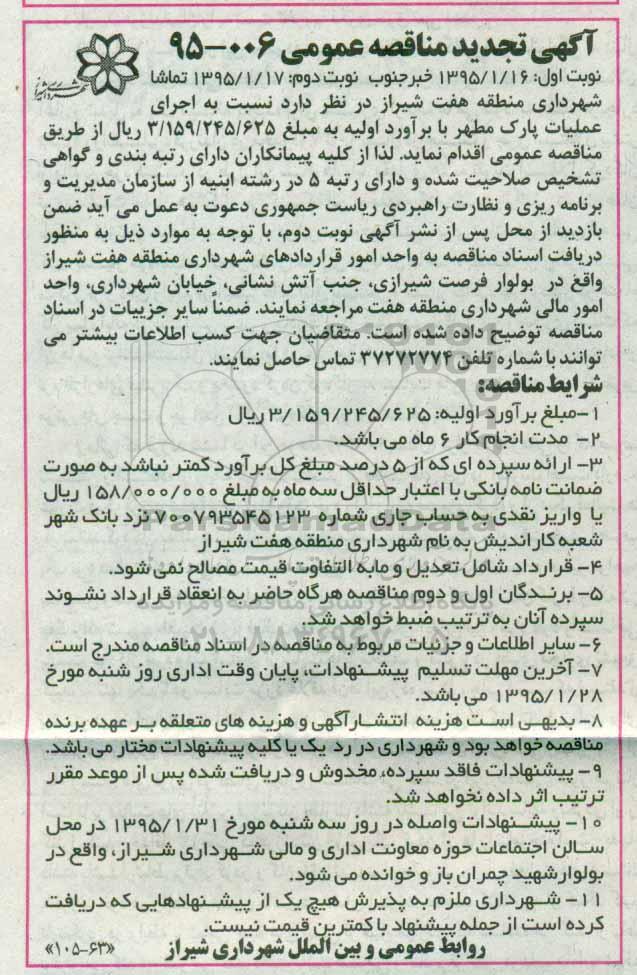 آگهی تجدید مناقصه عمومی ۰۰۶-۹۵
نوبت اول: ۱۳۹۵/۱/۱۶ خبرجنوب نوبت دوم: ۱۳۹۵/۱/۱۷ تماشا
شهرداری منطقه هفت شیراز در نظر دارد نسبت به اجرای
عملیات پارک مطهر با برآورد اولیه به مبلغ ۳/۱۵۹/۲۴۵/۶۲۵ ریال از طریق
مناقصه عمومی اقدام نماید. لذا از کلیه پیمانکاران دارای رتبه بندی و گواهی
تشخیص صلاحیت شده و دارای رتبه ۵ در رشته ابنیه از سازمان مدیریت و
برنامه ریزی و نظارت راهبردی ریاست جمهوری دعوت به عمل می آید ضمن
بازدید از محل پس از نشر آگهی نوبت دوم، با توجه به موارد ذیل به منظور
دریافت اسناد مناقصه به واحد امور قراردادهای شهرداری منطقه هفت شیراز
واقع در بولوار فرصت شیرازی، جنب آتش نشانی، خیابان شهرداری، واحد
امور مالی شهرداری منطقه هفت مراجعه نمایند. ضمناً سایر جزییات در اسناد
مناقصه توضیح داده شده است. متقاضیان جهت کسب اطلاعات بیشتر می
توانند با شماره تلفن ۳۷۲۷۲۷۷۴ تماس حاصل نمایند.
شرایط مناقصه:
۱-مبلغ برآورد اولیه: ۳/۱۵۹/۲۴۵/۶۲۵ ریال
۲- مدت انجام کار ۶ ماه می باشد.
۳- ارائه سپرده ای که از ۵ درصد مبلغ کل برآورد کمتر نباشد به صورت
ضمانت نامه بانکی با اعتبار حداقل سه ماه به مبلغ ۱۵۸/۰۰۰/۰۰۰ ریال
یا واریز نقدی به حساب جاری شماره ۷۰۰۷۹۳۵۴۵۱۲۳ نزد بانک شهر
شعبه کاراندیش به نام شهرداری منطقه هفت شیراز
۴- قرارداد شامل تعدیل و مابه التفاوت قیمت مصالح نمی شود.
۵- برندگان اول و دوم مناقصه هرگاه حاضر به انعقاد قرارداد نشوند
سپرده آنان به ترتیب ضبط خواهد شد.
۶- سایر اطلاعات و جزئیات مربوط به مناقصه در اسناد مناقصه مندرج است.
۷- آخرین مهلت تسلیم پیشنهادات، پایان وقت اداری روز شنبه مورخ
۱۳۹۵/۱/۲۸ می باشد.
۸- بدیهی است هزینه انتشارآگهی و هزینه های متعلقه بر عهده برنده
مناقصه خواهد بود و شهرداری در رد یک یا کلیه پیشنهادات مختار می باشد.
۹- پیشنهادات فاقد سپرده، مخدوش و دریافت شده پس از موعد مقرر
ترتیب اثر داده نخواهد شد.
۱۰- پیشنهادات واصله در روز سه شنبه مورخ ۱۳۹۵/۱/۳۱ در محل
سالن اجتماعات حوزه معاونت اداری و مالی شهرداری شیراز، واقع در
بولوارشهید چمران باز و خوانده می شود.
۱۱- شهرداری ملزم به پذیرش هیچ یک از پیشنهادهایی که دریافت
کرده است از جمله پیشنهاد با کمترین قیمت نیست.
روابط عمومی و بین الملل شهرداری شیراز «۶۳-۱۰۵»